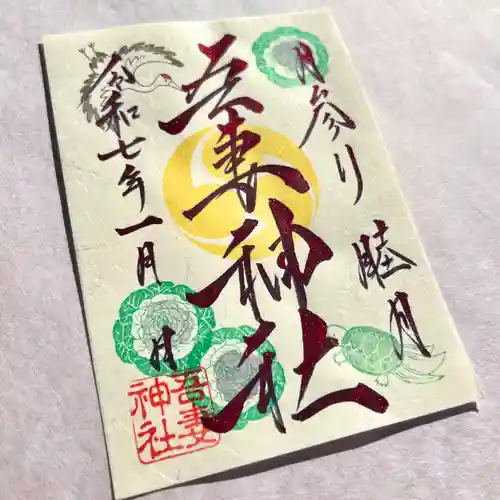 月参り
睦月
吾妻神社
令和七年一月 日
吾妻
神社